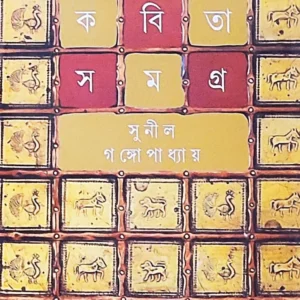 ক বি তা
স ম গ্র
সুনীল
গঙ্গোপাধ্যায়